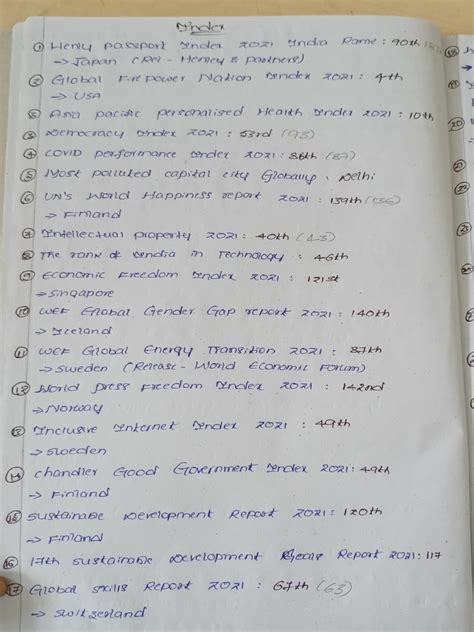 Index
① Henly passport Index 2021 India Rame : 90th
→ Japan (Rel - Henley & partners)
② Global Fire power Nation Index 2021 : 4th
→ USA
③ Asia pacific personalised Health Index 2021 : 10th
③ Democracy Index 2021 : 53rd (93)
④ COVID performance Index 2021 : 86th (87)
⑤ Most polluted capital city Globally : Delhi
⑥ UN's World Happiness report 2021 : 139th (136)
→ Finland
⑦ Intellectual property 2021 : 40th (43)
⑧ The rank of India in Technology : 46th
⑨ Economic Freedom Index 2021 : 121st
→ Singapore
⑩ WEF Global Gender Gap report 2021 : 140th
→ Iceland
⑪ WEF Global Energy Transition 2021 : 87th
→ Sweden (Release - World Economic Forum)
⑫ World press Freedom Index 2021 : 142nd
→ Norway
⑬ Inclusive Internet Index 2021 : 49th
→ Sweden
⑭ Chandler Good Government Index 2021 : 49th
→ Finland
⑮ Sustainable Development Report 2021 : 120th
→ Finland
⑯ 17th Sustainable Development Report 2021 : 117
⑰ Global skills Report 2021 : 67th (63)
→ Switzerland